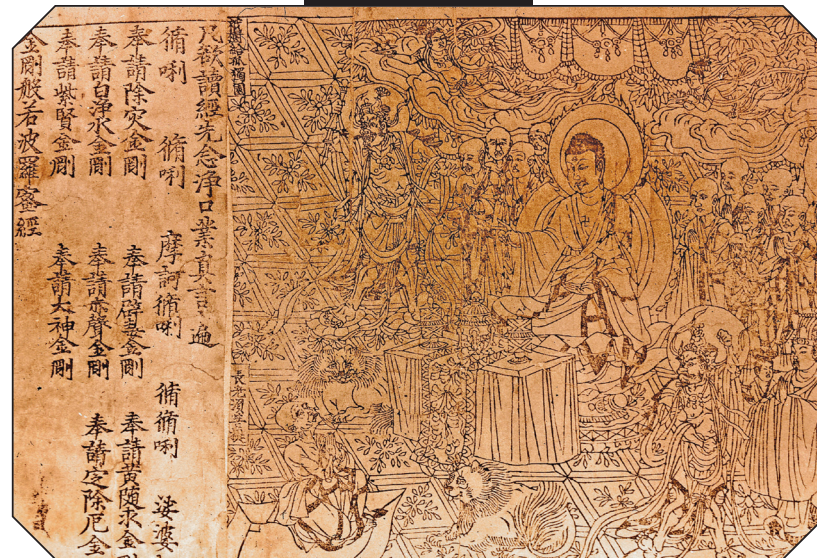 祇樹給孤獨園
長老須菩提
凡欲讀經先念淨口業真言一遍
脩唎 脩唎 摩訶脩唎 脩脩唎 娑婆
奉請除灾金剛 奉請辟毒金剛 奉請黃隨求金
奉請白淨水金剛 奉請赤聲金剛 奉請定除厄金
奉請紫賢金剛 奉請大神金剛
金剛般若波羅蜜經